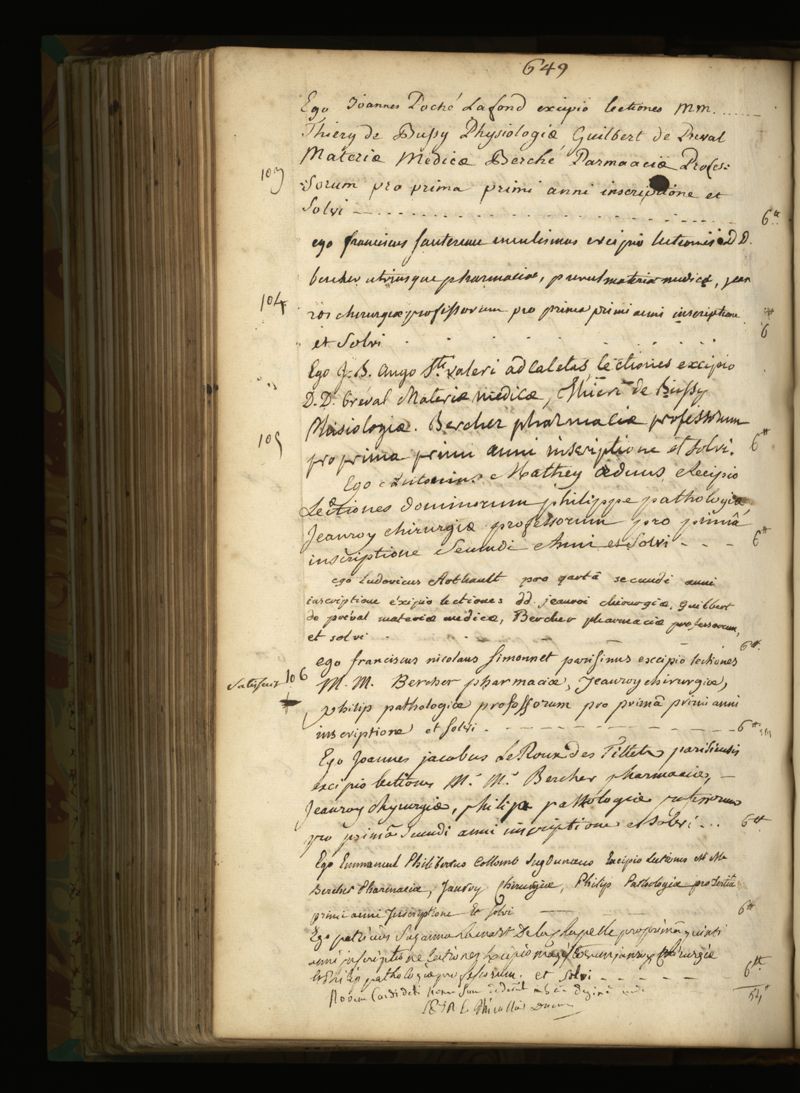 649
Ego Joannes Poché Lafond excipio lectiones MM.......
Thiery de Bussy Physiologiæ Guilbert de Preval
Materiæ Medicæ Berché Parmaaciæ Profes-
103
sorum pro prima primi anni inscriptione et
Solvi - - - - - 6 tt
ego franciscus excipio lectiones D D.
bercher utriusque pharmaciæ, preval materiæ medicæ, jean
104
roi chirurgiæ professorum pro prima primi anni inscriptione
et Solvi . . . . . 6 tt
Ego J. B. ango Sti Valeri ad Caletas lectiones excipio
D.D. Préval Materiæ medicæ, Thieri de Bussy
105
Phisiologiæ. Bercher pharmaciæ professorum
pro prima primi anni inscriptione et solvi. 6 tt
Ego Antonius Mathey æduus Excipio
Lectiones dominorum philippe pathologiæ
Jeanroy chirurgiæ professorum pro primâ
inscriptione Secundi Anni et Solvi - - - 6 tt
ego Ludovicus Arthault pro qartâ secundi anni
inscriptione exipio lectiones dd. jeanroi chirurgiæ, guilbert
de préval materiæ medicæ, Bercher pharmaciæ professorum,
et solvi . - - - 6 tt
106
ego franciscus nicolaus Simonnet parisinus excipio lectiones
M. M. Bercher pharmaciæ, Jeanroy chirurgiæ,
philip pathologiæ professorum pro primâ primi anni
inscriptione et solvi. - - - - - 6 tt
Ego Joannes jacobus LeRoux des Tillets parisiensis
excipio lectiones Mr. Mr. Bercher pharmaciæ, -
Jeanroy chyrurgiæ, philip pathologiæ
pro primâ Secundi anni inscriptione et Solvi ... 6 tt
Ego Emmanuel Philibertus Collomb Lugdunæus Excipio Lectiones
Bercher Pharmaciæ, Janroy Chirurgiæ, Philip Pathologiæ pro tertia
primi anni Inscriptione Et Solvi - - - 6 tt
Ego patricius de la chapelle pro primâ quinti
anni inscriptione lectiones Excipio janroy chirurgiæ
et Philip pathologiæ professorum. et Solvi - - - - 6 tt
54 tt